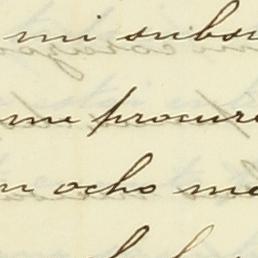 mi subs
me procur
n ocho me